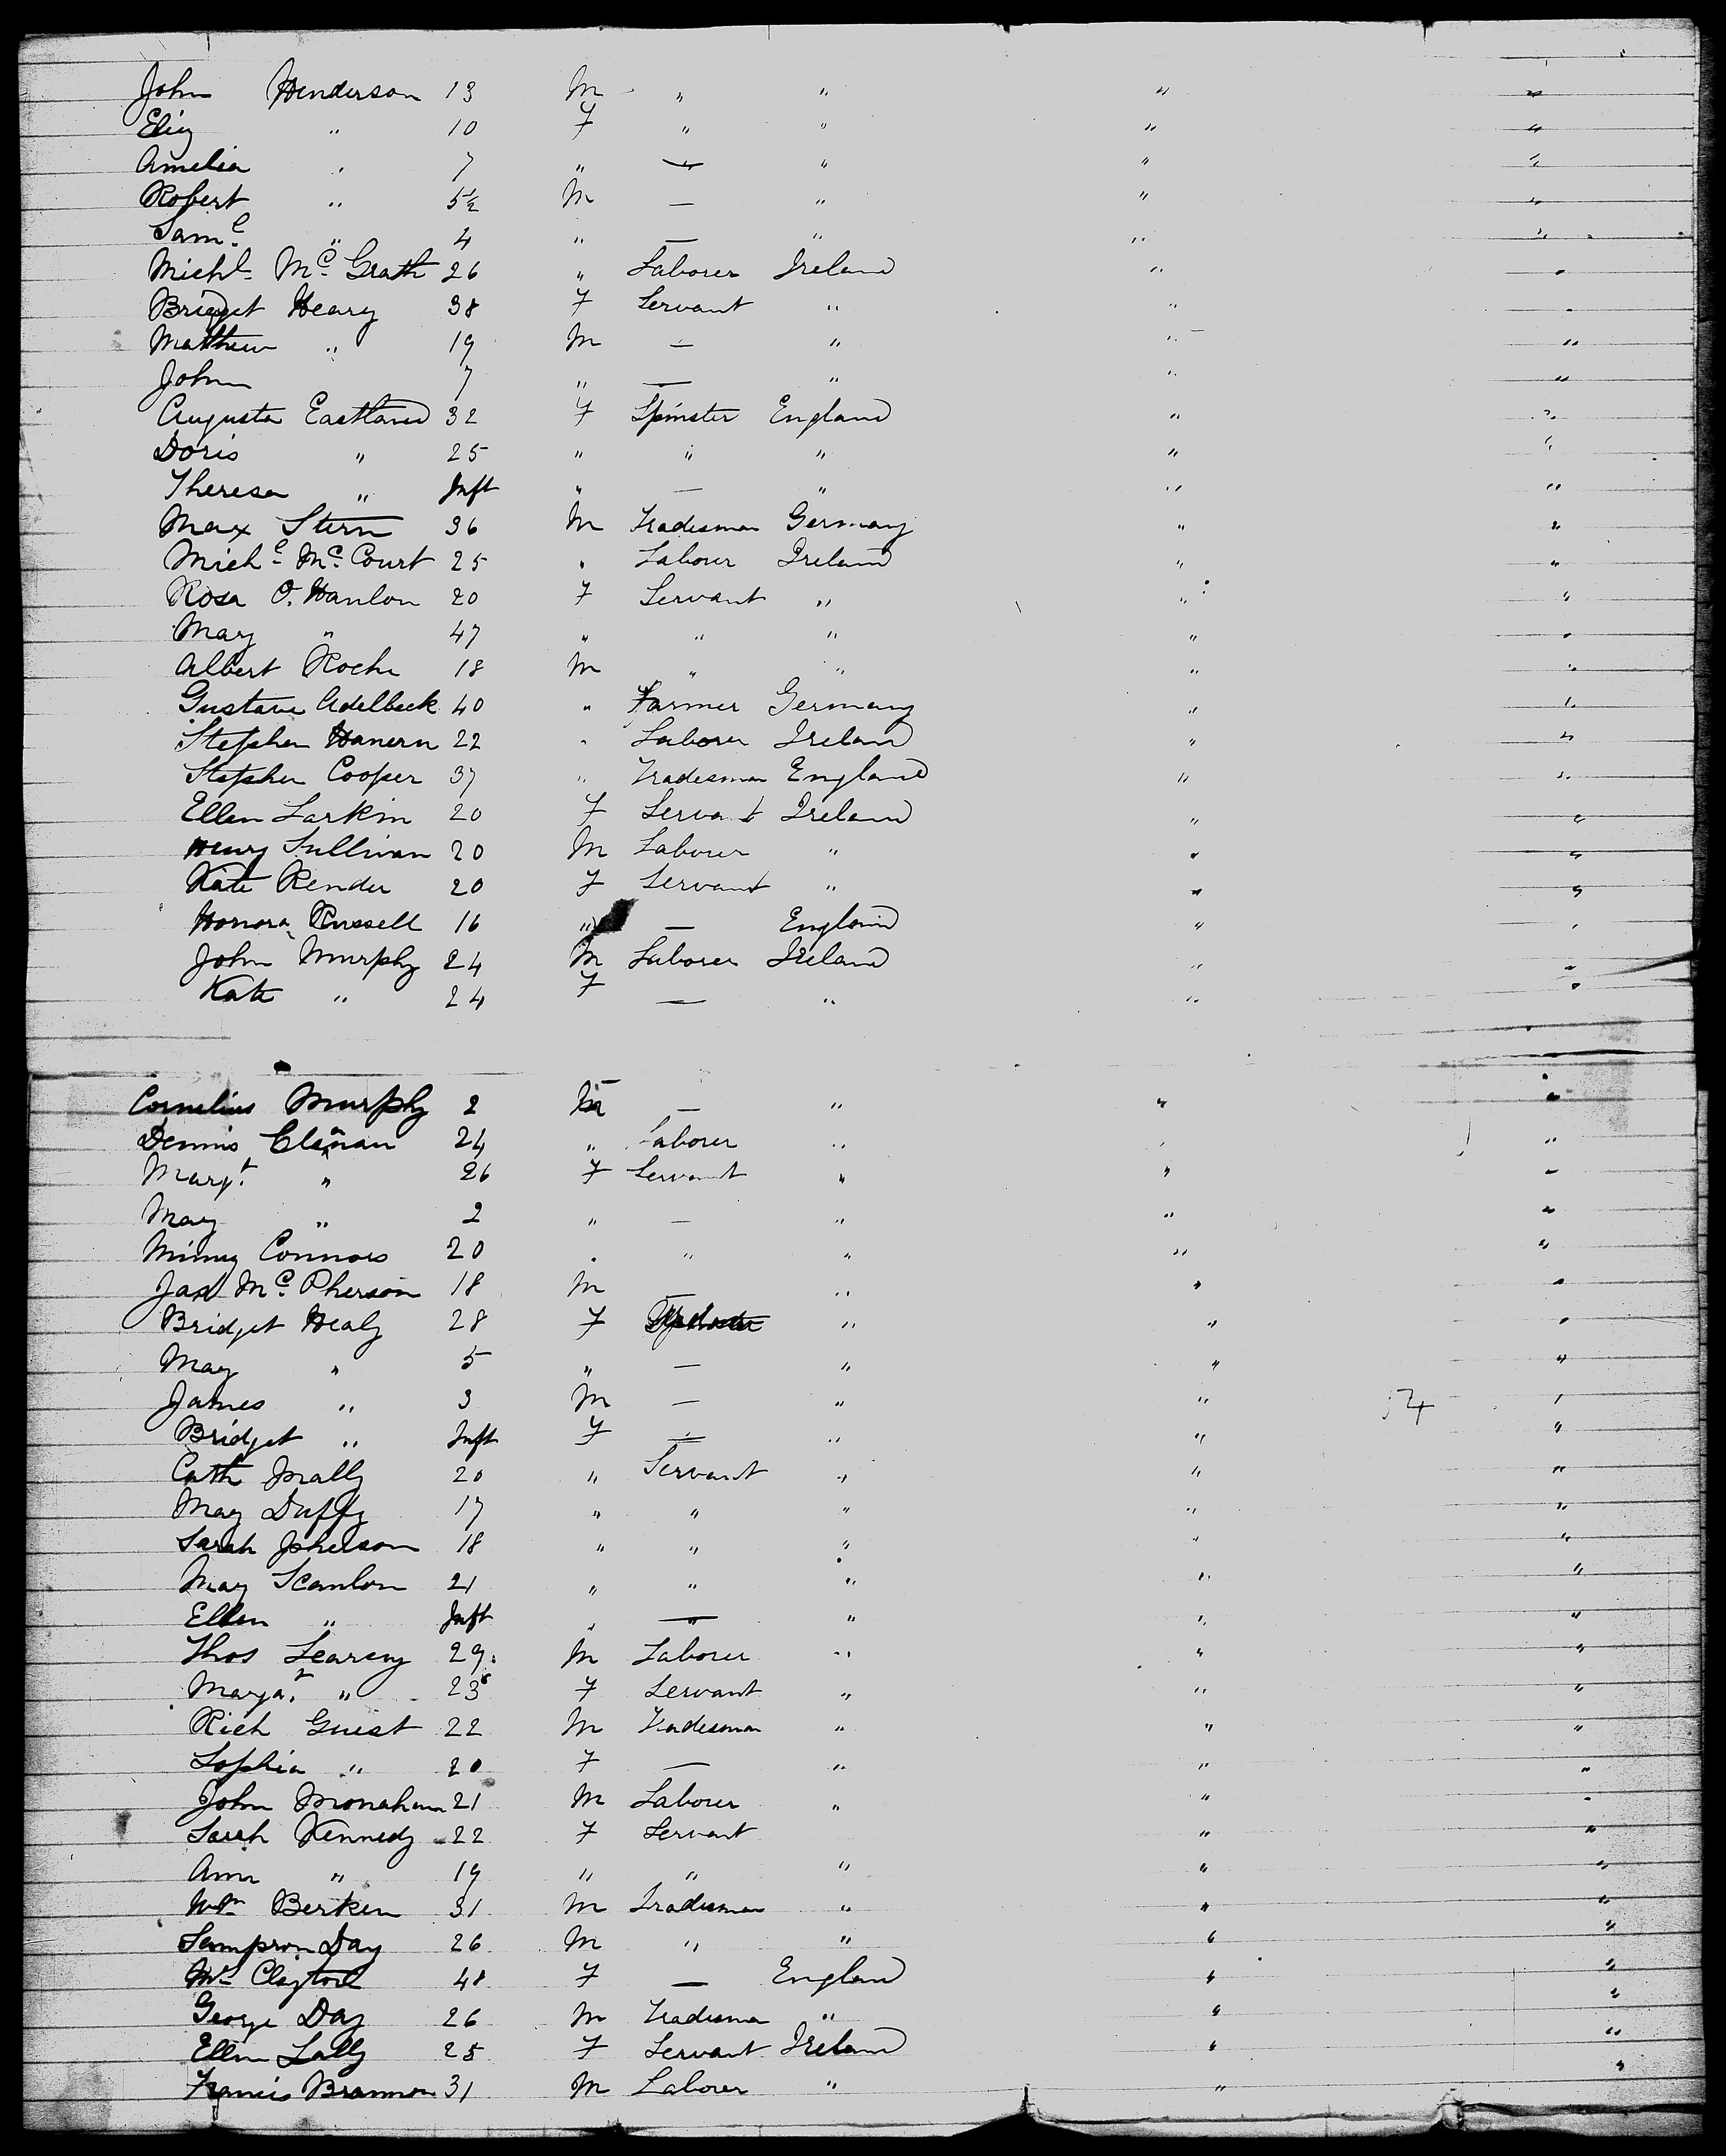 John Henderson 13 M " " " "
Eliz " 10 F " " " "
Amelia " 7 " — " " "
Robert " 5½ M — " " "
Saml " 4 " — " " "
Michl Mc Grath 26 " Laborer Ireland " "
Bridget Heary 38 F Servant " " "
Matthew " 19 M — " " "
John 7 " — " " "
Augusta Eastland 32 F Spinster England " "
Doris " 25 " " " " "
Theresa " Inft " — " " "
Max Stern 36 M Tradesman Germany " "
Michl Mc Court 25 " Laborer Ireland " "
Rosa O. Hanlon 20 F Servant " " "
Mary " 47 " " " " "
Albert Roche 18 M " " " "
Gustave Adelbeck 40 " Farmer Germany " "
Stephen Hanern 22 " Laborer Ireland " "
Stephen Cooper 37 " Tradesman England " "
Ellen Larkin 20 F Servant Ireland " "
Henry Sullivan 20 M Laborer " " "
Kate Render 20 F Servant " " "
Honora Russell 16 " — England " "
John Murphy 24 M Laborer Ireland " "
Kate " 24 F — " " "
Cornelius Murphy 2 M — " " "
Dennis 24 " Laborer " " "
Margt " 26 F Servant " " "
Mary " 2 " — " " "
Minny Connors 20 " " " " "
Jas Mc Pherson 18 M — " " "
Bridget Healy 28 F " " "
Mary " 5 " — " " "
James " 3 M — " " "
54
Bridget " Inft F — " " "
Cath 20 " Servant " " "
Mary Duffy 17 " " " " "
Sarah 18 " " " " "
Mary Scanlon 21 " " " " "
Ellen " Inft " — " " "
Thos Learcy 29 M Laborer " " "
Margat " 23 F Servant " " "
Rich Guest 22 M Tradesman " " "
Sophia " 20 F — " " "
John Monahan 21 M Laborer " " "
Sarah Kennedy 22 F Servant " "
Ann " 19 " " " " "
Wm Berken 31 M Tradesman " " "
Sampson Day 26 M " " " "
Mrs Clayton 48 F — England " "
George Day 26 M Tradesman " " "
Ellen Lally 25 F Servant Ireland " "
Francis Brannon 31 M Laborer " "